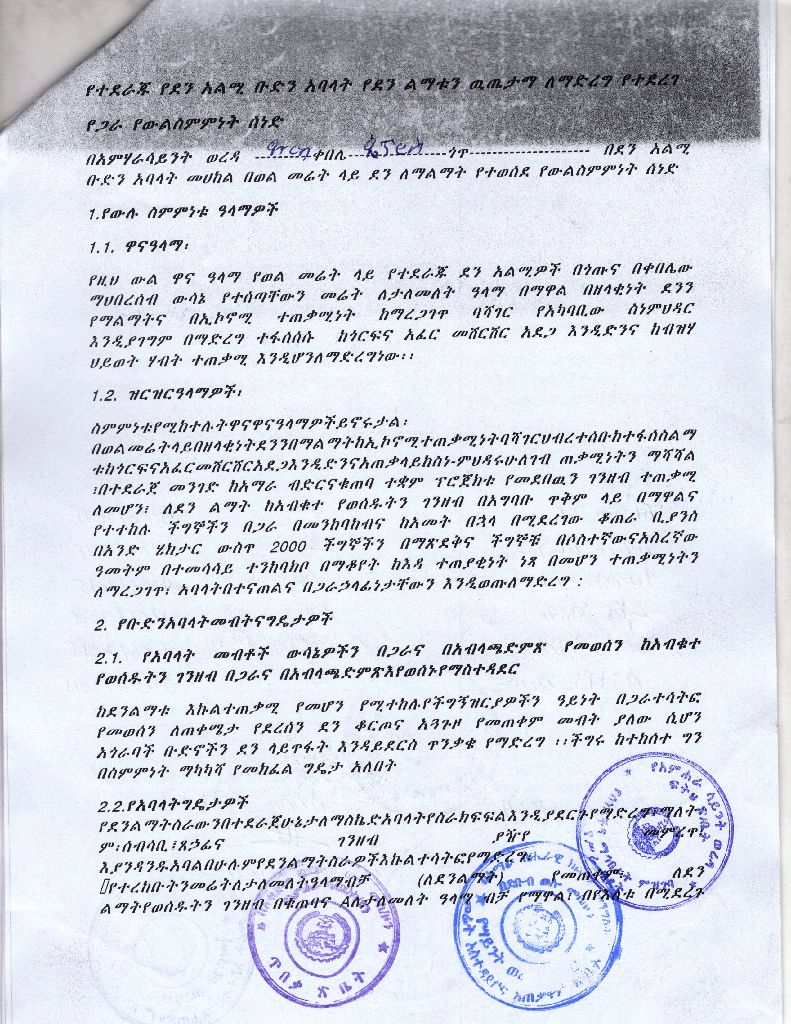 የተደራጁ የደን አልሚ ቡድን አባላት የደን ልማቱን ዉጤታማ ለማድረግ የተደረገ
የጋራ የውልስምምነት ሰነድ
በአምሃራሳይንት ወረዳ ቀበሌ ጎጥ በደን አልሚ
ቡድን አባላት መሀከል በወል መሬት ላይ ደን ለማልማት የተወሰደ የውልስምምነት ሰነድ
1.የውሉ ስምምነቱ ዓላማዎች
1.1. ዋናዓላማ፡
የዚህ ውል ዋና ዓላማ የወል መሬት ላይ የተደራጁ ደን አልሚዎች በጎጡና በቀበሌው
ማህበረሰብ ውሳኔ የተሰጣቸውን መሬት ለታለመለት ዓላማ በማዋል በዘላቂነት ደንን
የማልማትና በኢኮኖሚ ተጠቃሚነት ከማረጋገጥ ባሻገር የአካባቢው ስነምህዳር
እንዲያገግም በማድረግ ተፋሰሱ ከጎርፍና አፈር መሸርሸር አደጋ እንዲድንና ከብዝሃ
ህይወት ሃብት ተጠቃሚ እንዲሆንለማድረግነው፡፡
1.2. ዝርዝርዓላማዎች፡
ስምምነቱየሚከተሉትዋናዋናዓላማዎችይኖሩታል፡
በወልመሬትላይበዘላቂነትደንንበማልማትከኢኮኖሚተጠቃሚነትባሻገርህብረተሰቡከተፋሰስልማ
ቱከጎርፍናአፈርመሸርሸርአደጋእንዲድንናአጠቃላይከስነ-ምህዳሩሁለገብ ጠቃሚነትን ማሻሻል
፣በተደራጀ መንገድ ከአማራ ብድርናቁጠባ ተቋም ፕሮጀክቱ የመደበዉን ገንዘብ ተጠቃሚ
ለመሆን፣ ለደን ልማት ከአብቁተ የወሰዱትን ገንዘብ በአግባቡ ጥቅም ላይ በማዋልና
የተተከሉ ችግኞችን በጋራ በመንከባከብና ከአመት በኋላ በሚደረገው ቆጠራ ቢያንስ
በአንድ ሄክታር ውስጥ 2000 ችግኞችን በማጽደቅና ችግኞቹ በሶስተኛውናአስረኛው
ዓመትም በተመሳሳይ ተንከባክቦ በማቆየት ከእዳ ተጠያቂነት ነጻ በመሆን ተጠቃሚነትን
ለማረጋገጥ፣ አባላትበተናጠልና በጋራኃላፊነታቸውን እንዲወጡለማድረግ :
2. የቡድንአባላትመብትናግዴታዎች
2.1. የአባላት መብቶች ውሳኔዎችን በጋራና በአብላጫድምጽ የመወሰን ከአብቁተ
የወሰዱትን ገንዘብ በጋራና በአብላጫድምጽእየወሰኑየማስተዳደር
ከደንልማቱ እኩልተጠቃሚ የመሆን የሚተከሉየችግኝዝርያዎችን ዓይነት በጋራተሳትፎ
የመወሰን ለጠቀሜታ የደረሰን ደን ቆርጦና አጓጉዞ የመጠቀም መብት ያለው ሲሆን
አጎራባች ቡድኖችን ደን ላይጥፋት እንዳይደርስ ጥንቃቄ የማድረግ ፡፡ችግሩ ከተከሰተ ግን
በስምምነት ማካካሻ የመክፈል ግዴታ አለበት
2.2.የአባላትግዴታዎች
የደንልማትስራውንበተደራጀሁኔታለማስኬድአባላትየስራክፍፍልእንዲያደርጉየማድረግ፣ማለት
ም፡ሰብሳቢ፣ጸኃፊና ገንዘብ ያዥየ መምረጥ፣
እያንዳንዱአባልበሁሉምየደንልማትስራዎችእኩልተሳትፎየማድረግ፣
የተረከቡትንመሬትለታለመለትዓላማብቻ (ለደንልማት) የመጠቀም፣ ለደን
ልማትየወሰዱትን ገንዘብ በቁጠባና Aለታለመለት ዓላማ ብቻ የማዋል፣ በየእለቱ በሚደረጉ